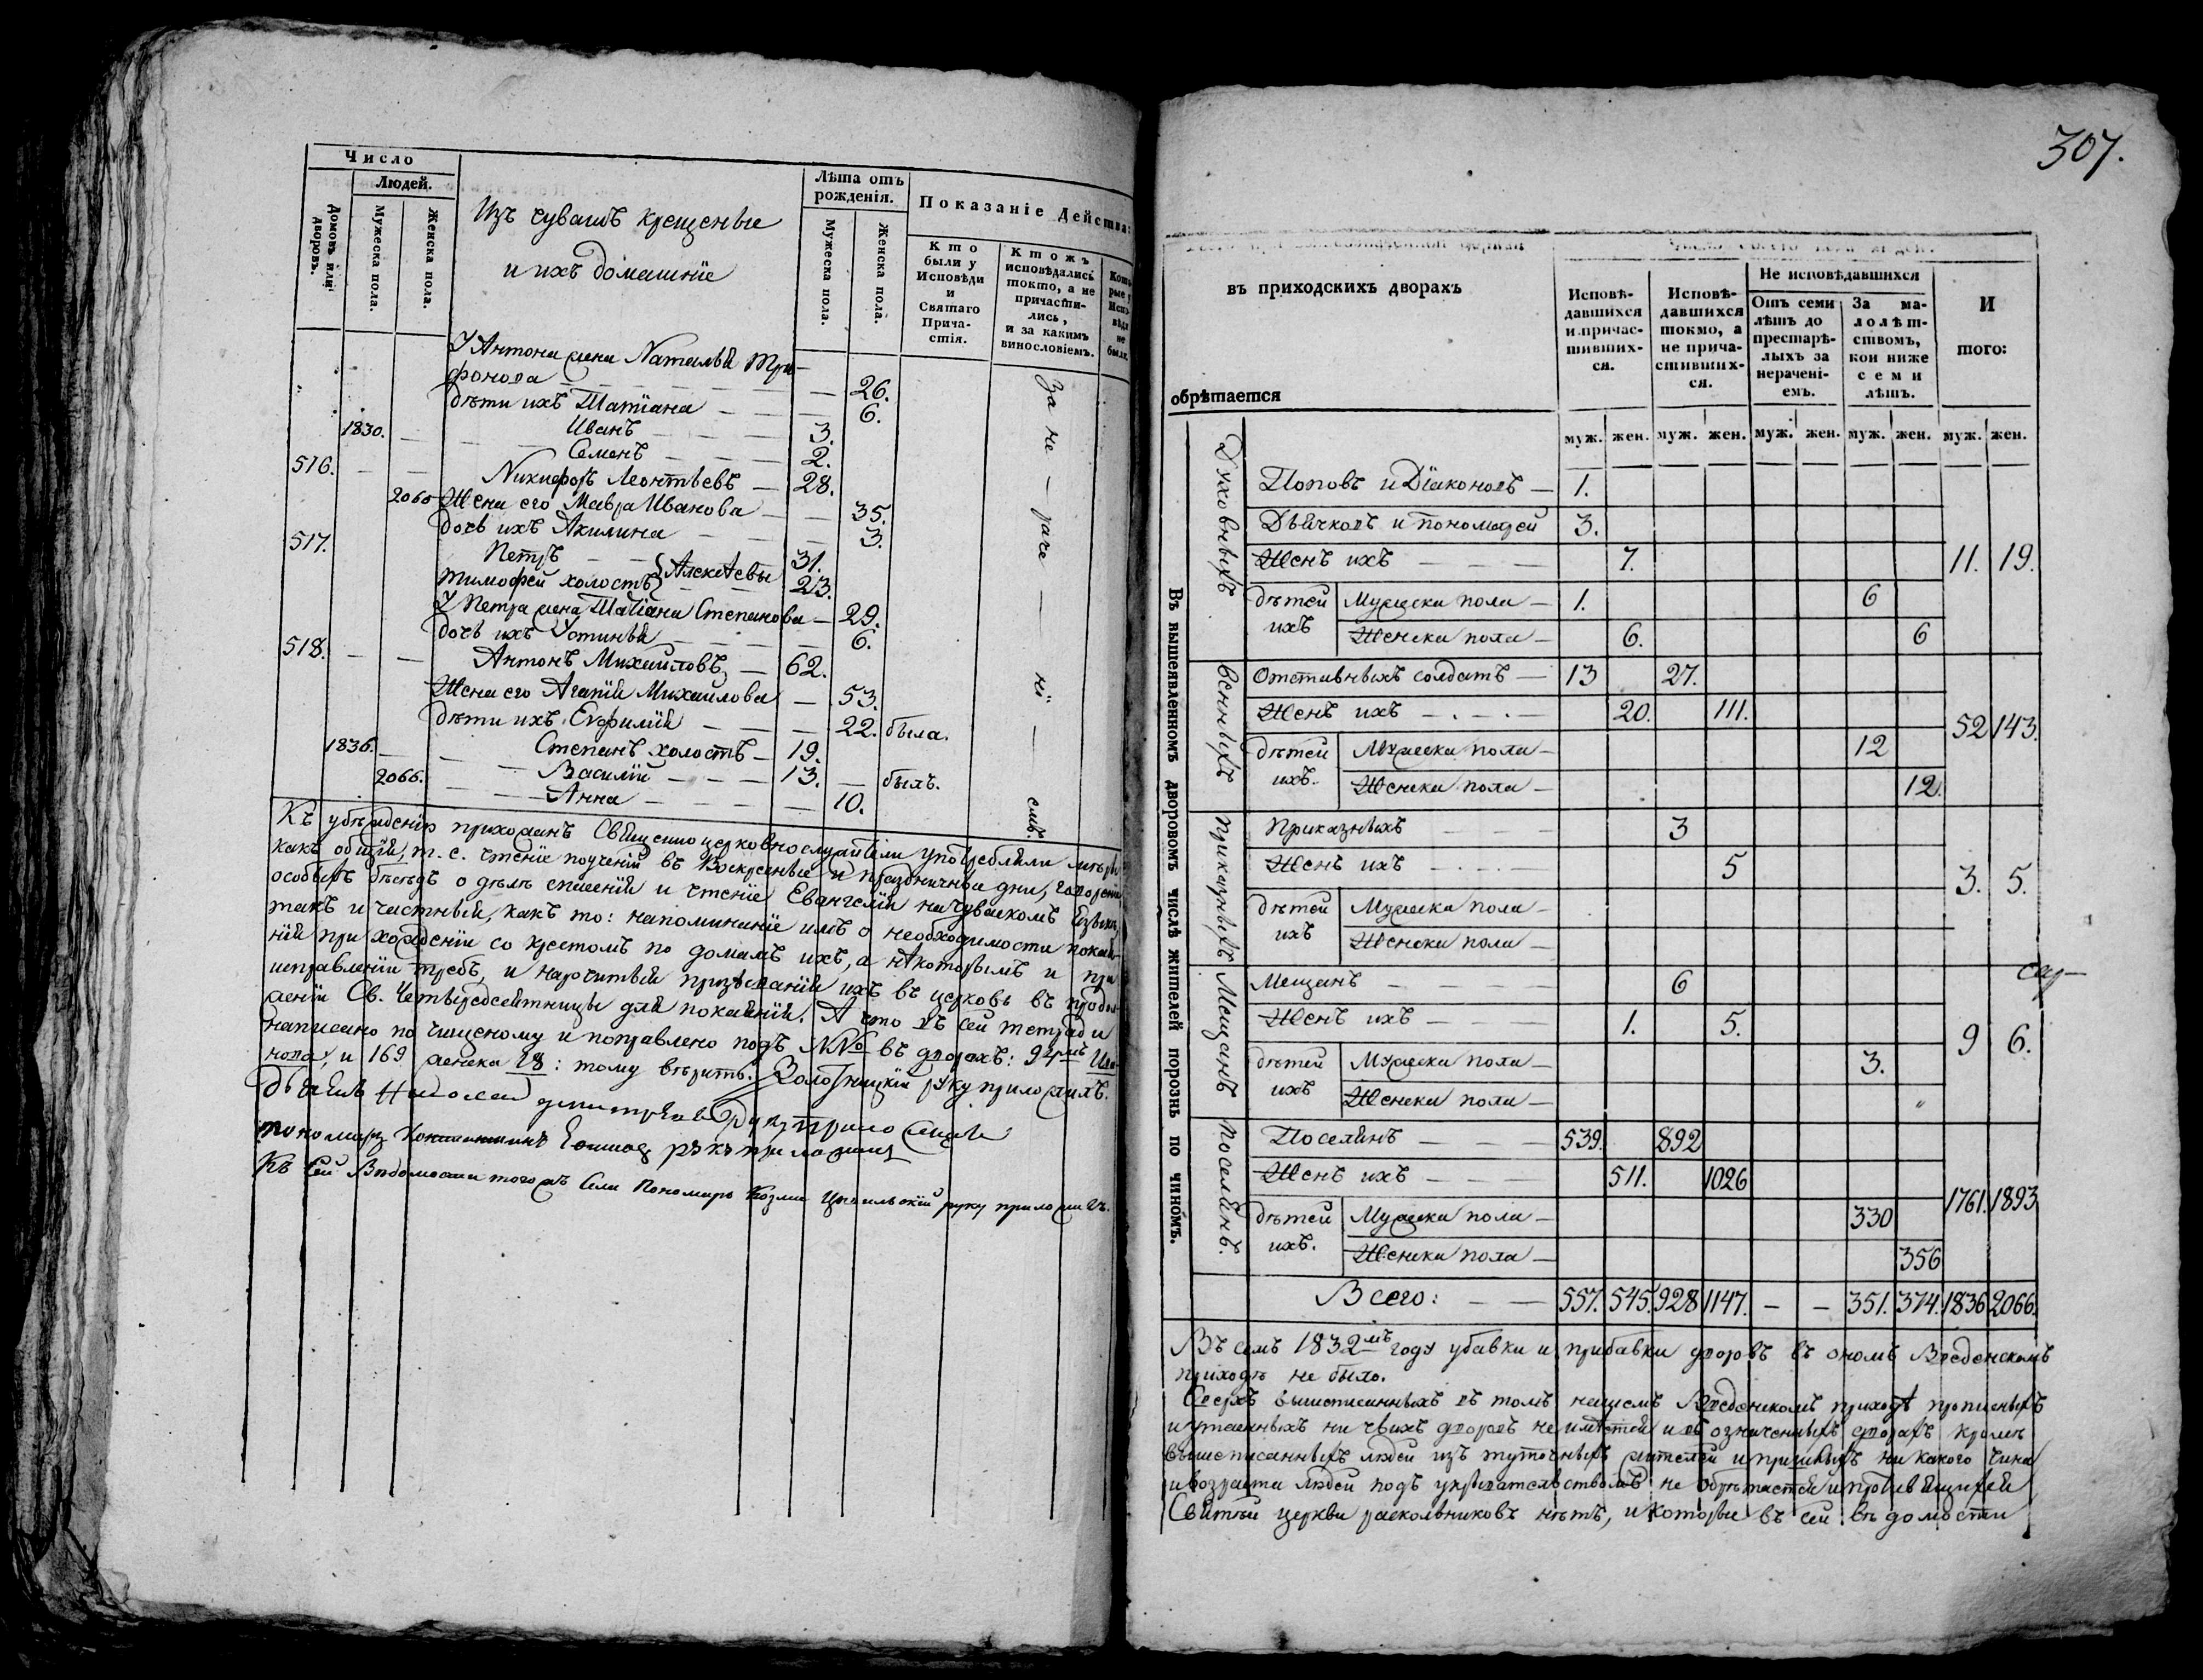 Число
Людей.
Домовъ или дворовъ.
Мужеска пола.
Женска пола.
Изъ чувашъ крещеные
и ихъ домашніе
Лѣта отъ рожденія.
Мужеска пола.
Женска пола.
Показаніе дѣйства:
Кто были у Исповѣди и Святаго Причастія.
Ктожъ исповѣдались токмо, а не причастились, и за какимъ винословіемъ.
У Антона жена Наталья Три-
фонова — 26.
дѣти ихъ Татіана — 6.
1830. Иванъ — 3.
Семенъ — 2.
516. Никифоръ Леонтьевъ — 28.
2060 Жена его Мавра Иванова — 35.
дочь ихъ Акилина — 3.
517. Петръ 31.
Тимофей холостъ } Алексѣевы 23.
У Петра жена Татіана Степанова — 29.
дочь ихъ Устинья — 6.
518. Антонъ Михайловъ — 62.
Жена его Агапія Михайлова — 53.
дѣти ихъ Евфимія — 22. была.
1836. Степанъ холостъ — 19.
Василій — 13. былъ.
2066. Анна — 10.
За не — раче — ні — емъ.
Къ убѣжденію прихожанъ Священноцерковнослужители употребляли мѣры
какъ общія, т. е. чтеніе поученій въ Воскресные и праздничные дни, говореніе
особыхъ бесѣдъ о дѣлѣ спасенія и чтеніе Евангелія на чувашскомъ языкѣ,
такъ и частныя, какъ то: напоминаніе имъ о необходимости покая-
нія при хожденіи со крестомъ по домамъ ихъ, а нѣкоторымъ и при
исправленіи требъ, и нарочитыя призыванія ихъ въ церковь въ продол-
женіи Св. Четыредесятницы для покаянія. А что въ сей тетради
написано по чищеному и поправлено подъ №№ въ дворахъ: 94мъ Ива-
нова, и 169 женска 28: тому вѣрить. Золотницкій руку приложилъ.
Дьячекъ Николай Дмитріевъ руку приложилъ
пономарь Константинъ руку приложилъ
Къ сей Вѣдомости тогожъ Села Пономарь Козма Цывильскій руку приложилъ.
307.
въ приходскихъ дворахъ
обрѣтается
Исповѣдавшихся и причастившихся.
Исповѣдавшихся токмо, а не причастившихся.
Не исповѣдавшихся
Отъ семи лѣтъ до престарѣлыхъ за нераченіемъ.
За малолѣтствомъ, кои ниже семи лѣтъ.
И того:
муж. жен. муж. жен. муж. жен. муж. жен. муж. жен.
Въ вышеявленномъ дворовомъ числѣ жителей порознь по чиномъ.
Духовныхъ
Поповъ и Діаконовъ — 1.
Дьячковъ и пономарей 3.
Женъ ихъ — 7. 11. 19.
дѣтей ихъ Мужеска пола — 1. 6
Женска пола — 6. 6
Военныхъ
Отставныхъ солдатъ — 13 27.
Женъ ихъ — 20. 111. 52 143.
дѣтей ихъ. Мужеска пола — 12
Женска пола — 12.
Приказныхъ
Приказныхъ 3
Женъ ихъ 5 3. 5.
дѣтей ихъ Мужеска пола —
Женска пола —
Мещанъ
Мещанъ — 6
Женъ ихъ — 1. 5. 9 6.
дѣтей ихъ Мужеска пола — 3.
Женска пола — "
Поселянъ.
Поселянъ — 539. 892
Женъ ихъ — 511. 1026 1761. 1893
дѣтей ихъ. Мужеска пола — 330
Женска пола — 356
Всего: — 557. 545. 928 1147. — — 351. 374. 1836 2066.
Въ семъ 1832мъ году убавки и прибавки дворовъ въ ономъ Введенскомъ
приходѣ не было.
Сверхъ вышеписанныхъ въ томъ нашемъ Введенскомъ приходѣ прописныхъ
и утаенныхъ ни чьихъ дворовъ не имѣется и въ означенныхъ дворахъ кромѣ
вышеписанныхъ людей изъ тутошныхъ жителей и пришлыхъ ни какого чина
и возраста людей подъ укрывательствомъ не обрѣтается и противящихся
Святѣй церкви раскольниковъ нѣтъ, и которые въ сей вѣдомости